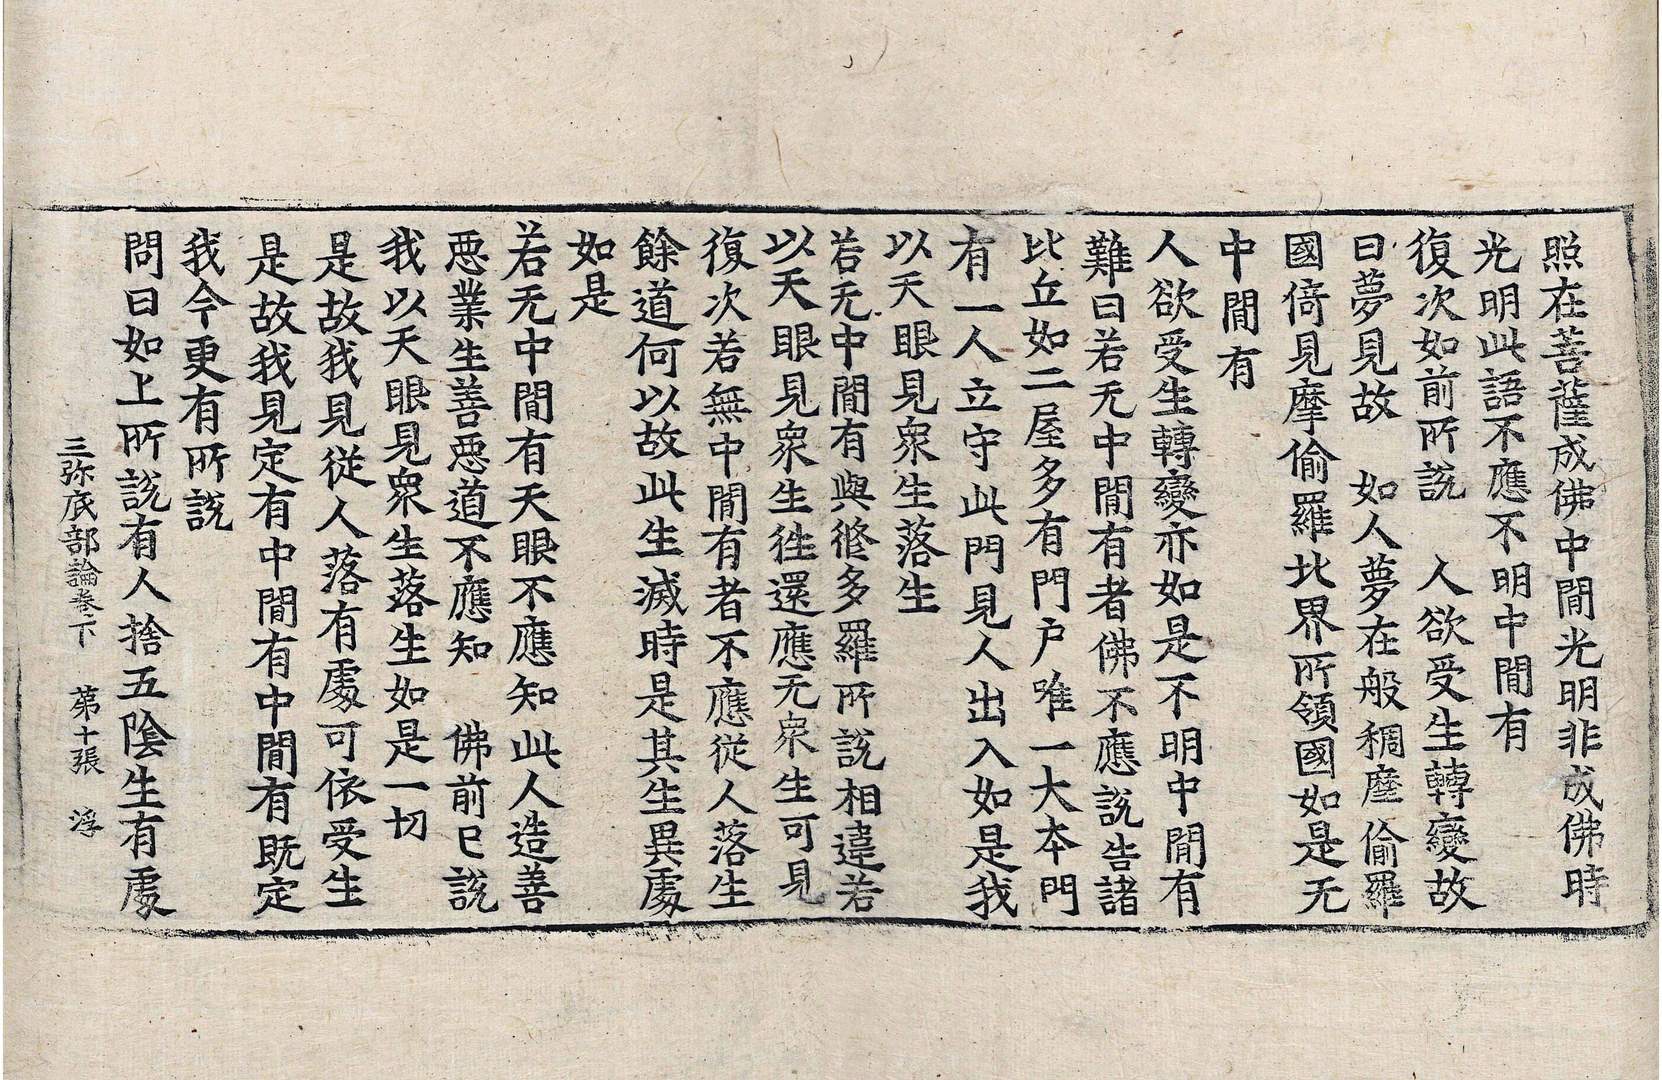 照在菩薩成佛中閒光明非成佛時
光明此語不應不明中閒有
復次如前所說　人欲受生轉變故
曰夢見故　如人夢在般稠座偷羅
國倚見摩偷羅北界所領國如是无
中閒有
人欲受生轉變亦如是不明中閒有
難曰若无中閒有者佛不應說告諸
比丘如二屋多有門户唯一大夲門
有一人立守此門見人出入如是我
以天眼見衆生落生
若无中閒有與修多羅所說相違若
以天眼見衆生往還應无衆生可見
復次若無中閒有者不應從人落生
餘道何以故此生滅時是其生異處
如是
若无中閒有天眼不應知此人造善
惡業生善惡道不應知　佛前已說
我以天眼見衆生落生如是一切
是故我見從人落有處可依受生
是故我見定有中閒有中閒有既定
我今更有所說
問曰如上所說有人捨五陰生有處
三弥底部論卷下　第十張　浮